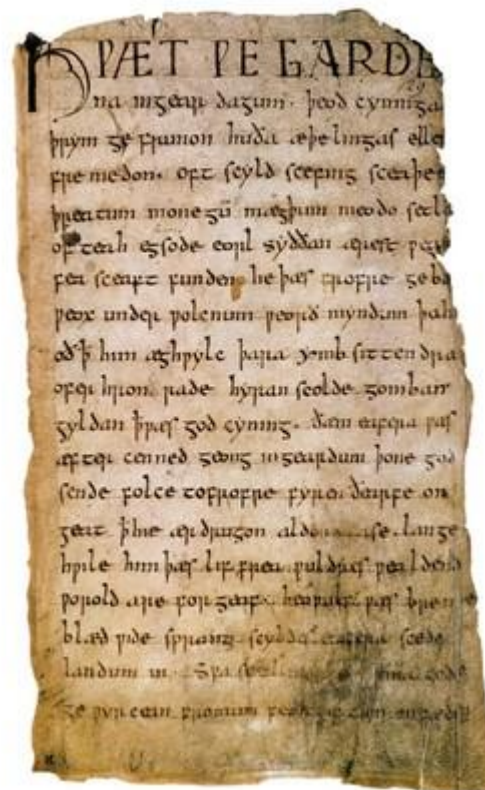 HǷÆT ǷE GARDE
na ingear dagum. þeod cyninga
þrym ge frunon huða æþelingas elle
fre medon. oft scyld scefing sceaþe
þreatum monegū mægþum meodo setla
of teah egsode eorl syððan ærest ƿear
fea sceaft funden he þæs frofre geba
ƿeox under ƿolcnum ƿeorð myndum þah
oð ꝥ him æghƿylc þara ymb sittendra
ofer hron rade hyran scolde gomban
gyldan ꝥ ƿæs god cyning. ðæm eafera ƿæs
æfter cenned geong ingeardum þone god
sende folce tofrofre fyren ðearfe on
geat ꝥ hie ær drugon aldor ase. lange
hƿile him þæs lif frea ƿuldres ƿealdend
ƿorold are for geaf. beoƿulf ƿæs breme
blæd ƿide sprang scyldes eafera scede
landum in. Sƿa guma gode
ge ƿyrcean fromum feoh giftum on fæder